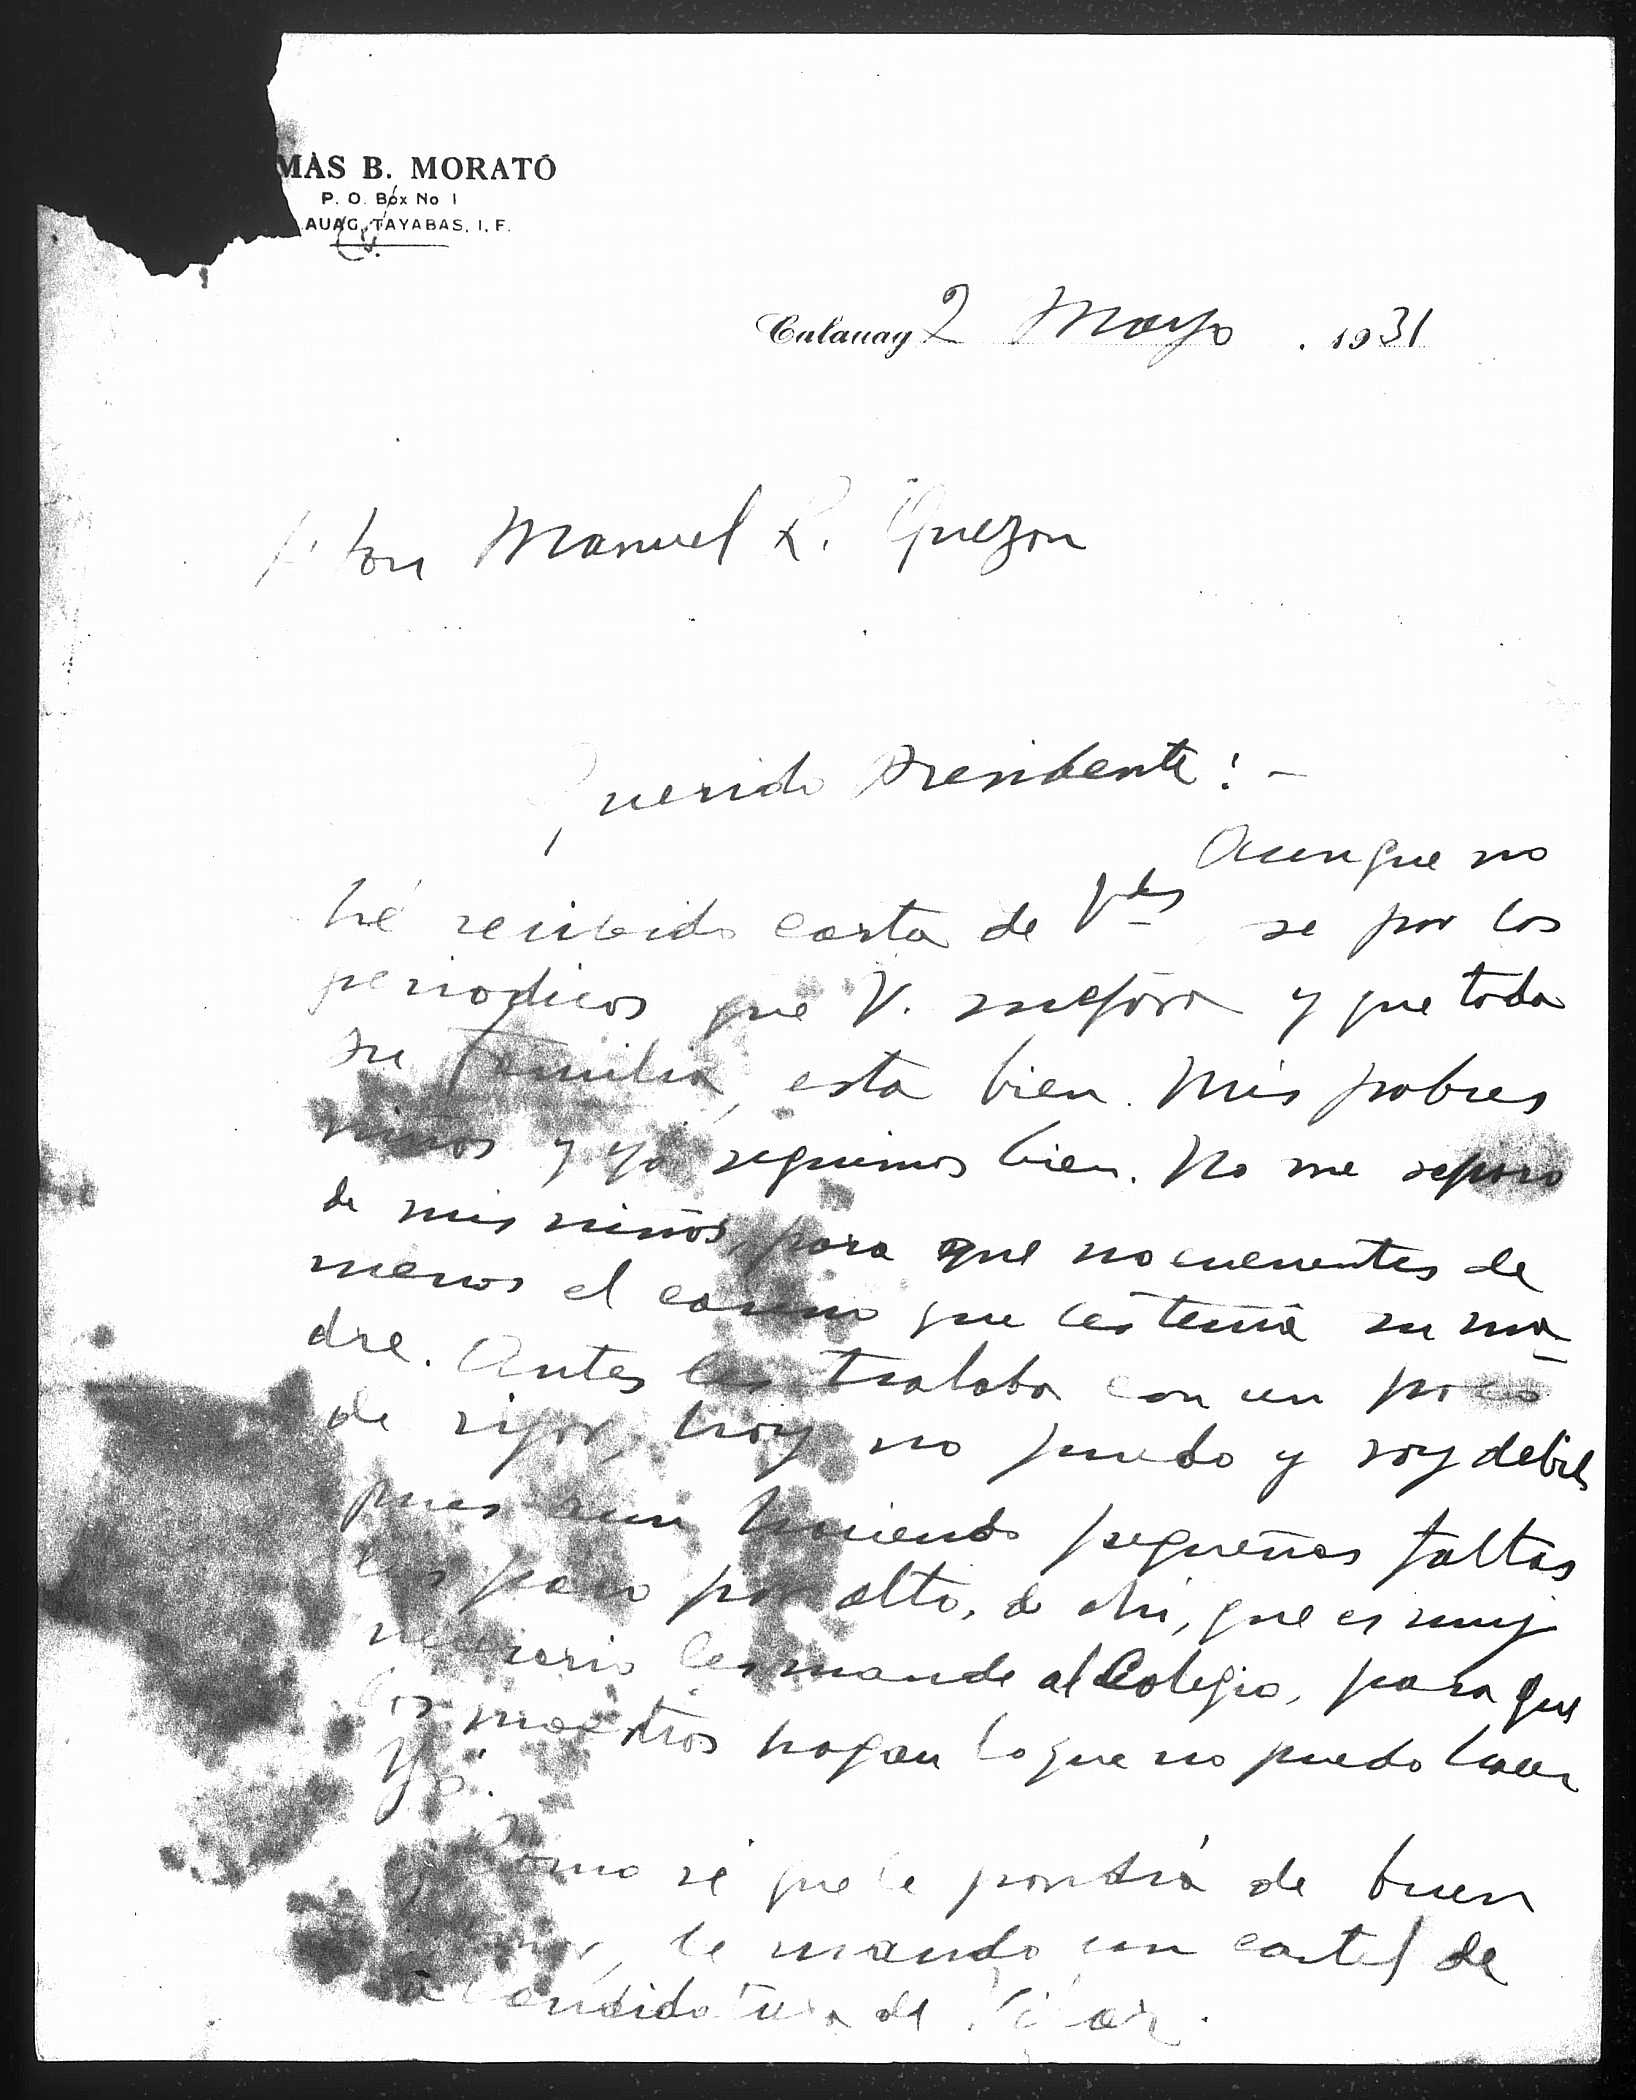 MÀS B. MORATÓ
P. O. Box No 1
AUAG, TAYABAS, I. F.
Calauag 2 Mayo . 1931
Hon Manuel L. Quezon
Querido Presidente : -
Aunque no
hé recibido carta de Vdes se por los
periodicos que V. mejora y que toda
su familia, esta bien. Mis pobres
niños y yo seguimos bien. No me separo
de mis niños, para que no encuentes de
menos el cariño que les tenia su ma-
dre. Antes les trataba con un poco
de rigor, hoy no puedo y soy debil
pues aun haciendo pequeñas faltas
las paso por alto, de ahi, que es muy
necesario les mande al Colegio, para que
los maestros hagan lo que no puedo hacer
Yo.
Como sé que le pondrá de buen
le mando un cartel de
la candidatura de